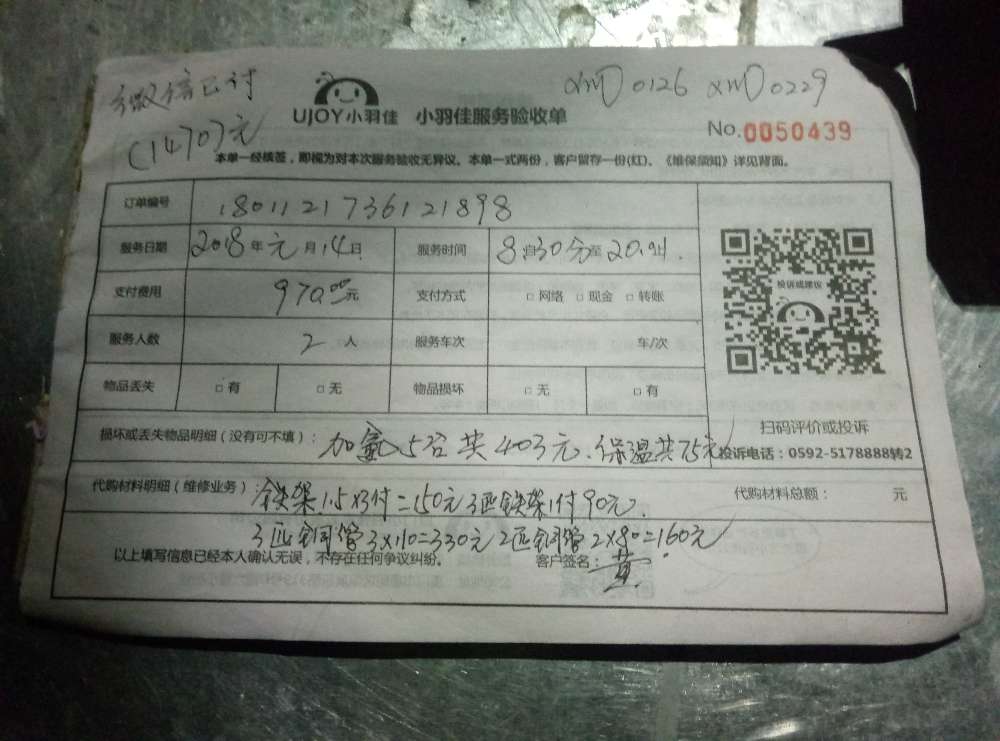 微信已付
(1470)元
XMD0126 XMD0229
UJOY小羽佳 小羽佳服务验收单
No.0050439
本单一经续签，即视为对本次服务验收无异议。本单一式两份，客户留存一份(红)、《维保须知》详见背面。
订单编号 1801121736121898
服务日期 2018年元月14日 服务时间 8:30分至20.
支付费用 970.00元 支付方式 □网络 □现金 □转账
服务人数 2人 服务车次 车/次
物品丢失 □有 □无 物品损坏 □无 □有
投诉或建议
扫码评价或投诉
投诉电话：0592-5178888转2
损坏或丢失物品明细（没有可不填）：加氟5台共403元.保温共75元
代购材料明细（维修业务）：铁架1.5 3付=150元 3匹铁架1付90元. 代购材料总额： 元
3匹铜管3×110=330元 2匹铜管2×80=160元
以上填写信息已经本人确认无误，不存在任何争议纠纷。 客户签名：黄